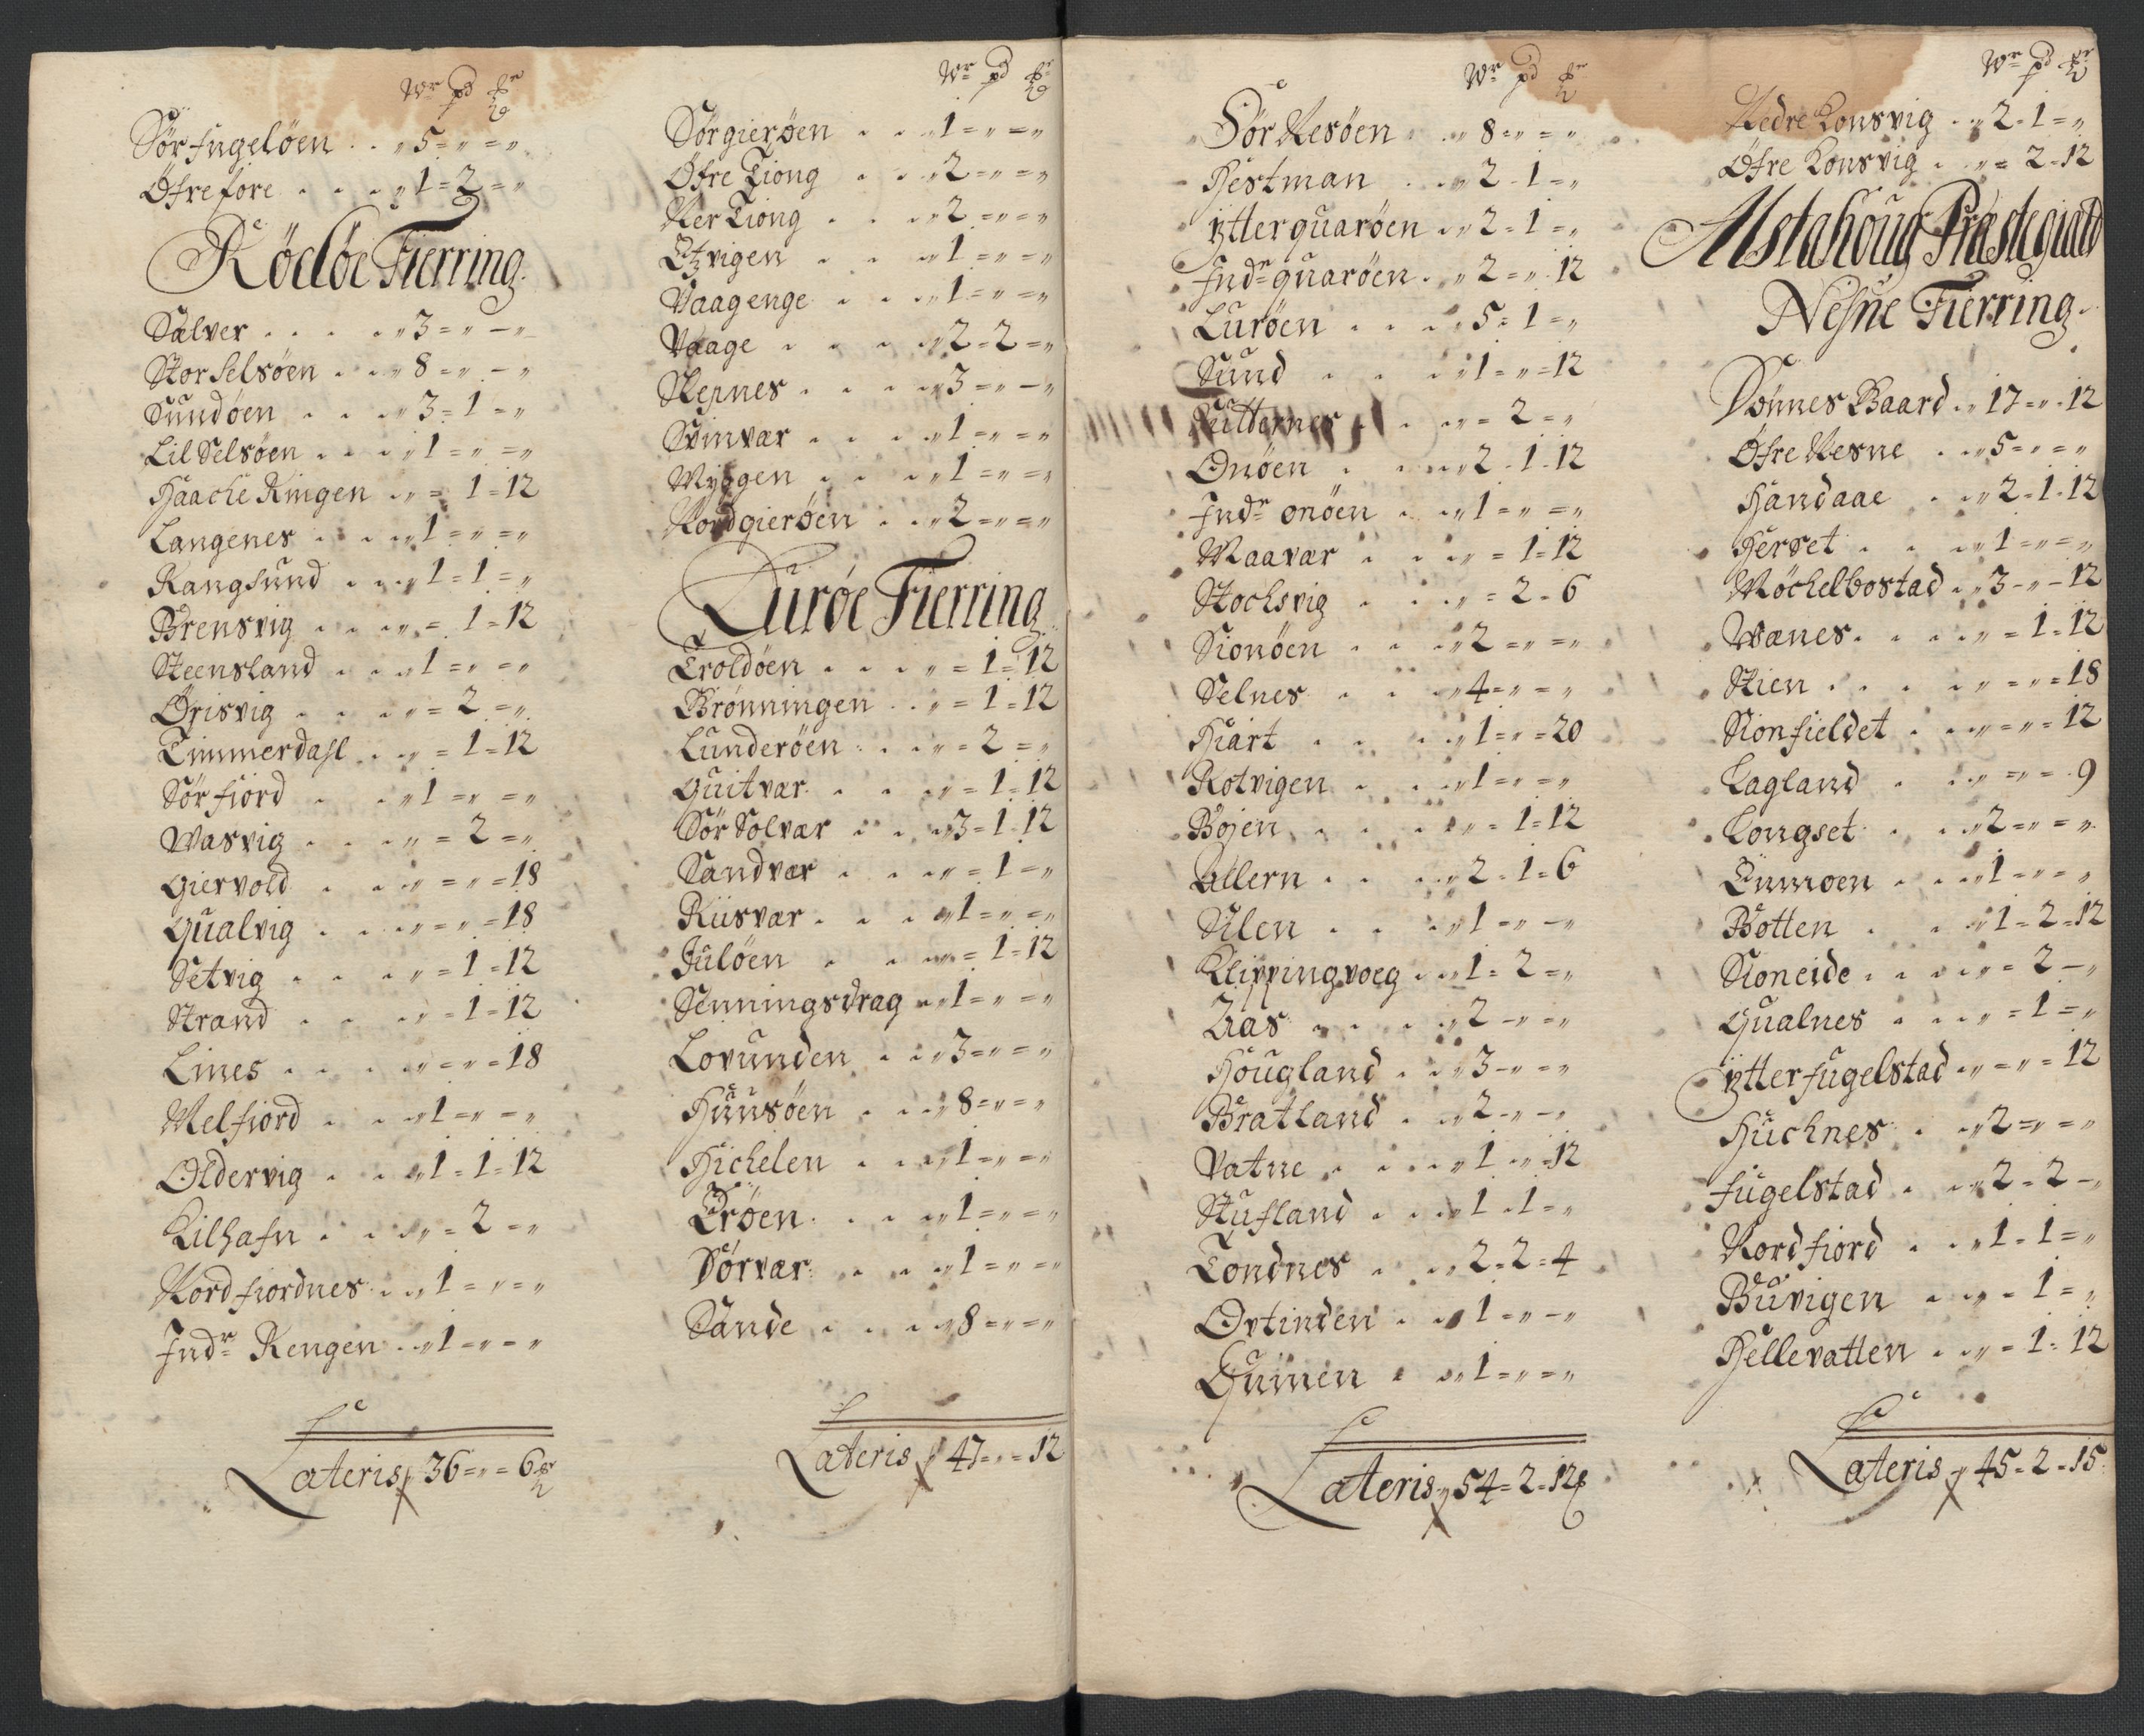 Wr pd
Sörfugelöen . . „ 5 = „ = „
Öfrefore . . . „ 1 = 2 = „
Rödöe Fierring.
Sælver . . . . „ 3 = „ – „
Storselsöen . . „ 8 = „ – „
Sundöen . . . „ 3 = 1 = „
Lilselsöen . . . „ 1 = „ = „
Haache Ringen . „ = 1 = 12
Langenes . . . „ 1 = „ = „
Rangsund . . . „ 1 = 1 = „
Brensvig . . . „ = 1 = 12
Steensland . . . „ 1 = „ = „
Örisvig . . . . „ = 2 = „
Timmerdahl . . „ = 1 = 12
Sörfiord . . . „ 1 = „ = „
Wasvig . . . . „ = 2 = „
Giervold . . . „ = „ = 18
Qualvig . . . . „ = „ = 18
Setvig . . . . „ = 1 = 12
Strand . . . . „ = 1 = 12
Lines . . . . „ = „ = 18
Melfiord . . . „ 1 = „ = „
Oldervig . . . „ 1 = 1 = 12
Kilhafn . . . . „ = 2 = „
Nordfiordnes . . „ 1 = „ = „
Indr Rengen . . „ 1 = „ = „
Lateris 36 = „ = 6
Wr pd
Sörgieröen . . . „ 1 = „ = „
Öfre Tiong . . . „ 2 = „ = „
Ner Tiong . . . „ 2 = „ = „
Etzvigen . . . „ 1 = „ = „
Vaagenge . . . „ 1 = „ = „
Vaage . . . . „ 2 = 2 = „
Nepnes . . . . „ 3 = „ – „
Svinvær . . . . „ 1 = „ = „
Myggen . . . „ 1 = „ = „
Nordgieröen . . „ 2 = „ = „
Luröe Fierring
Troldöen . . . . „ = 1 = 12
Brønningen . . „ = 1 = 12
Lunderöen . . . „ = 2 = „
Quitvær . . . . „ = 1 = 12
Sör Solvær . . . „ 3 = 1 = 12
Sandvær . . . „ = 1 = „
Riisvær . . . . „ 1 = „ = „
Julöen . . . . „ = 1 = 12
Senningsdrag . „ 1 = „ = „
Lovunden . . . „ 3 = „ = „
Huusöen . . . „ 8 = „ = „
Hichelen . . . „ 1 = „ = „
Eröen . . . . „ 1 = „ = „
Dörvær . . . . „ 1 = „ = „
Sande . . . . „ 8 = „ = „
Lateris 47 = „ = 12
Wr pd
Sör Nesöen . . „ 8 = „ = „
Hestman . . . „ 2 = 1 = „
Ytterquaröen . . „ 2 = 1 = „
Indr quaröen . „ 2 = „ = 12
Luröen . . . . „ 5 = 1 = „
Sund . . . . „ 1 = „ = 12
Qutternes . . . „ = 2 = „
Onöen . . . . „ 2 = 1 = 12
Indr onöen . . „ 1 = „ = „
Maavær . . . „ = 1 = 12
Stochsvig . . . „ = 2 = 6
Sionöen . . . . „ 2 = „ = „
Selnes . . . . „ 4 = „ = „
Hiart . . . . „ 1 = „ = 20
Rotvigen . . . „ 1 = „ = „
Böjen . . . . „ = 1 = 12
Ullern . . . . „ 2 = 1 = 6
Silen . . . . „ 1 = „ – „
Klippingvoeg . . „ 1 = 2 = „
Aas . . . . „ 2 – „ = „
Hougland . . . „ 3 – „ = „
Bratland . . . „ 2 – „ – „
Vatne . . . . „ 1 = „ = 12
Stufland . . . „ 1 = 1 = „
Tondnes . . . „ 2 = 2 = 4
Ovtinden . . . „ 1 = „ – „
Quinen . . . „ 1 = „ = „
Lateris 54 = 2 = 12
Wr pd
Nedre Konsvig . „ 2 = 1 = „
Öfre Konsvig . . „ = 2 = 12
Alstahoug Præstegiæld
Nesne Fierring.
Dönnes Gaard . „ 17 = „ = 12
Öfre Nesne . . „ 5 = „ = „
Handaae . . . „ 2 = 1 = 12
Herset . . . . „ 1 = „ = „
Möchelbostad . . „ 3 – „ – 12
Wænes . . . . „ = 1 = 12
Stien . . . . „ = „ = 18
Sionfieldet . . . „ = „ = 12
Lagland . . . „ = „ = 9
Longset . . . . „ 2 = „ = „
Enmoen . . . „ 1 = „ = „
Botten . . . „ 1 = 2 = 12
Sioneide . . . . „ = 2 – „
Qualnes . . . . „ = 1 = „
Ytterfugelstad . . „ = „ = 12
Huchnes . . . „ 2 = „ = „
Fugelstad . . . „ 2 = 2 – „
Nordfiord . . . „ 1 = 1 = „
Buvigen . . . „ = 1 = „
Hellevatten . . „ = 1 = 12
Lateris 45 = 2 = 15